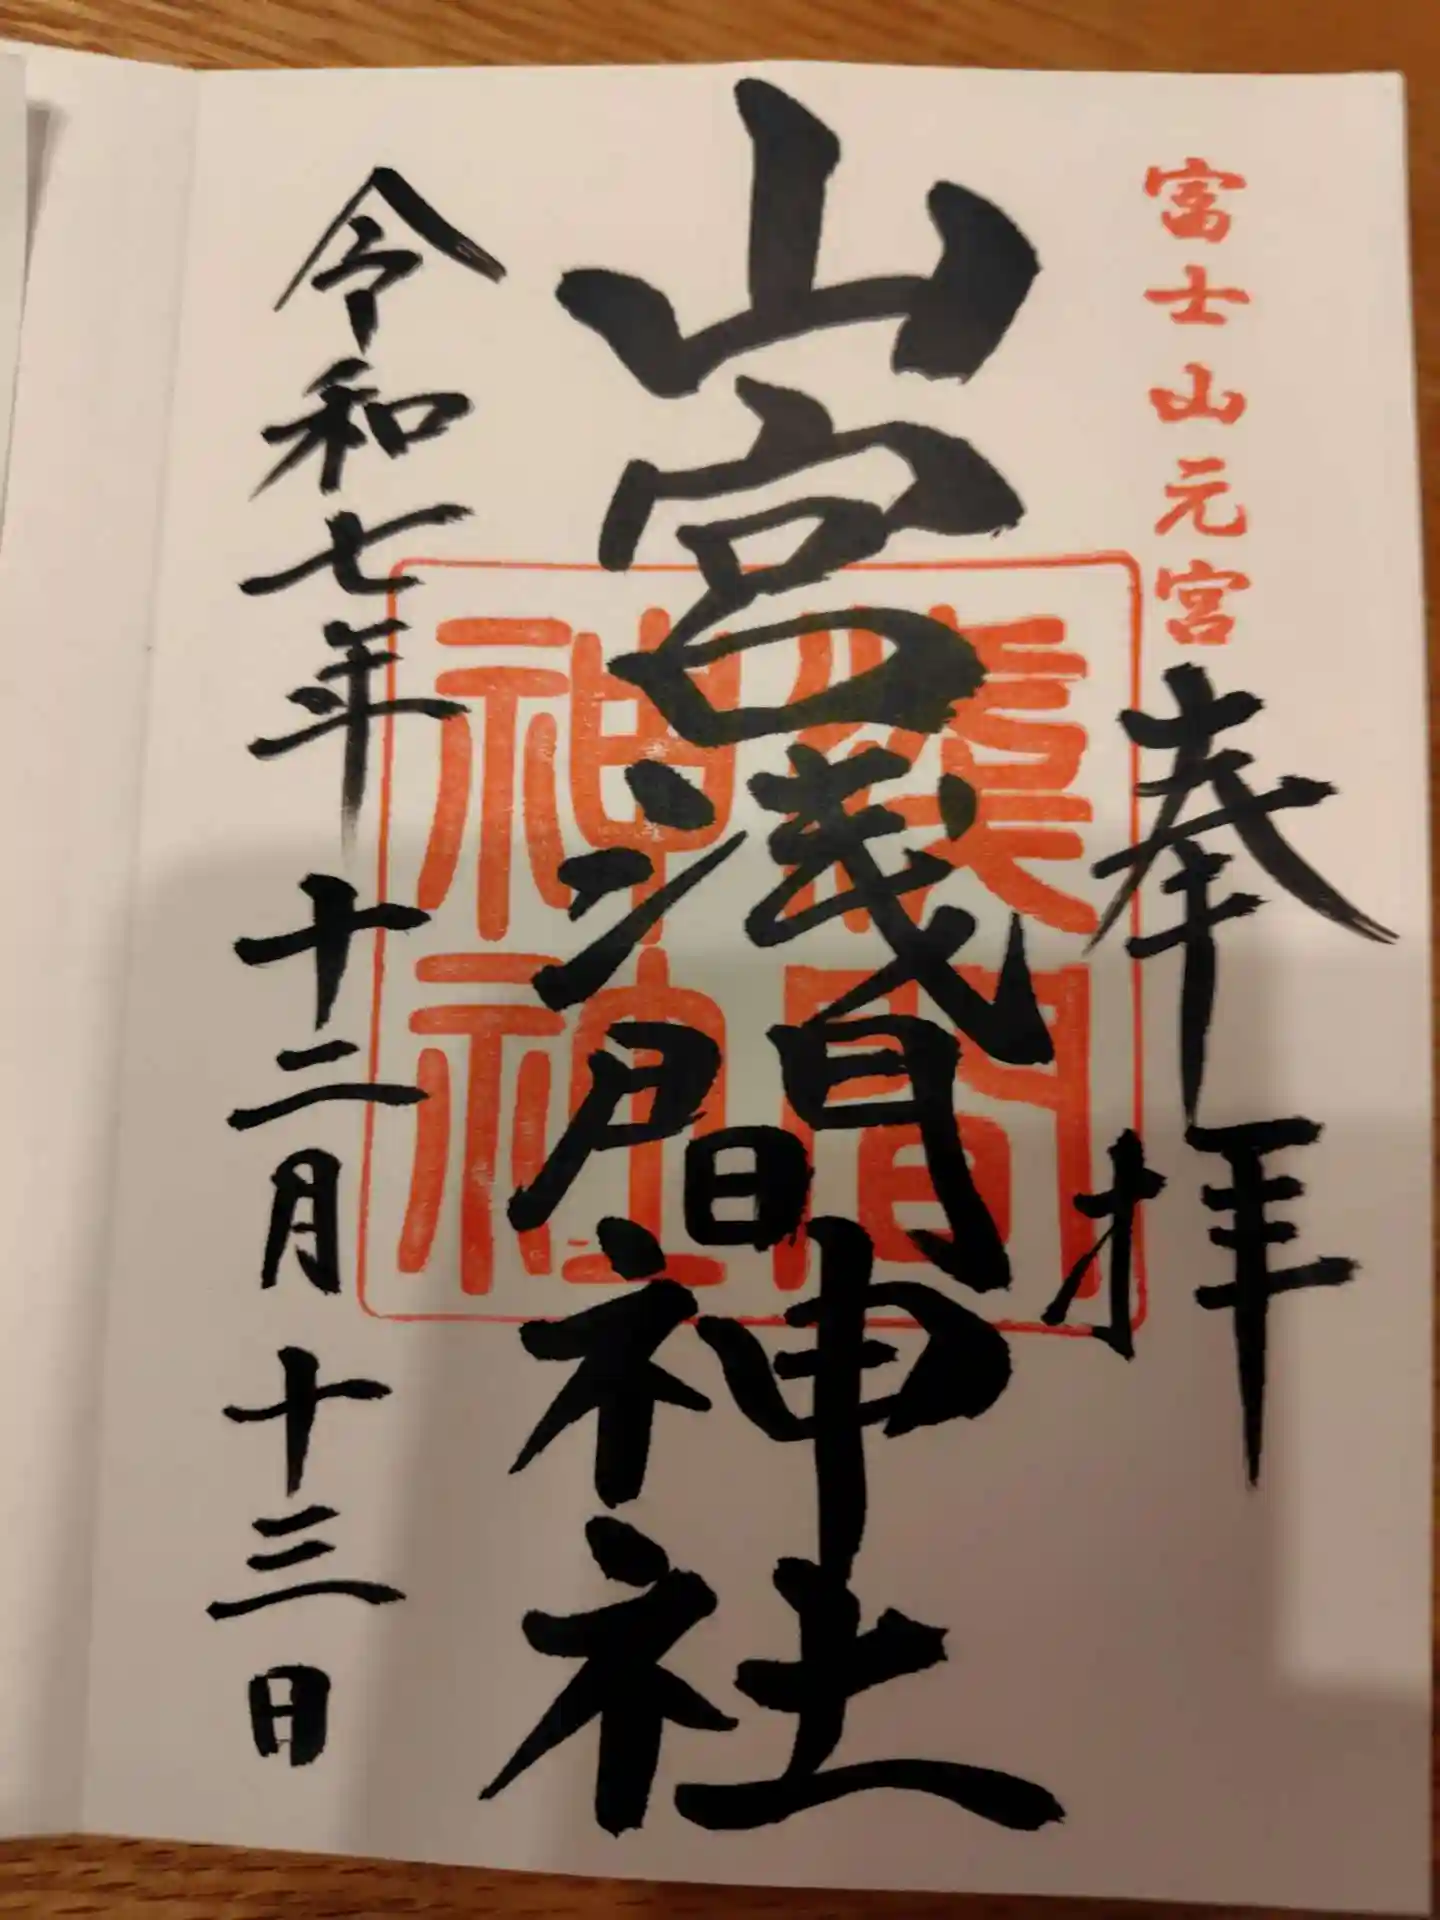 富士山元宮
奉拝
山宮浅間神社
浅間
神社
令和七年十二月十三日